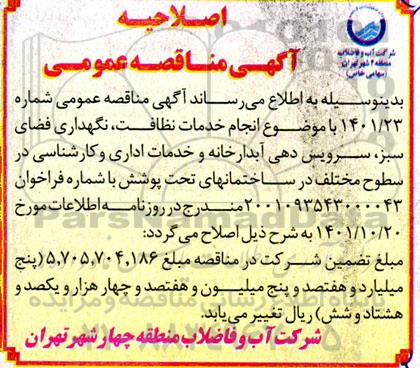 اصلاحیه
آگهی مناقصه عمومی
شرکت آب و فاضلاب
منطقه ۴ شهر تهران
(سهامی خاص)
بدینوسیله به اطلاع می‌رساند آگهی مناقصه عمومی شماره
۱۴۰۱/۲۳ با موضوع انجام خدمات نظافت، نگهداری فضای
سبز، سرویس دهی آبدارخانه و خدمات اداری و کارشناسی در
سطوح مختلف در ساختمانهای تحت پوشش با شماره فراخوان
۲۰۰۱۰۹۳۵۴۳۰۰۰۰۴۳ مندرج در روزنامه اطلاعات مورخ
۱۴۰۱/۱۰/۲۰ به شرح ذیل اصلاح می‌گردد:
مبلغ تضمین شرکت در مناقصه مبلغ ۵,۷۰۵,۷۰۴,۱۸۶ (پنج
میلیارد و هفتصد و پنج میلیون و هفتصد و چهار هزار و یکصد و
هشتاد و شش) ریال تغییر می‌یابد.
شرکت آب و فاضلاب منطقه چهار شهر تهران
ParsNamadData